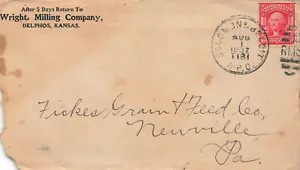 After 5 Days Return To
Wright Milling Company,
DELPHOS, KANSAS.
AUG
17
R.P.O.
Fickes Grain & Feed Co,
Newville
Pa.